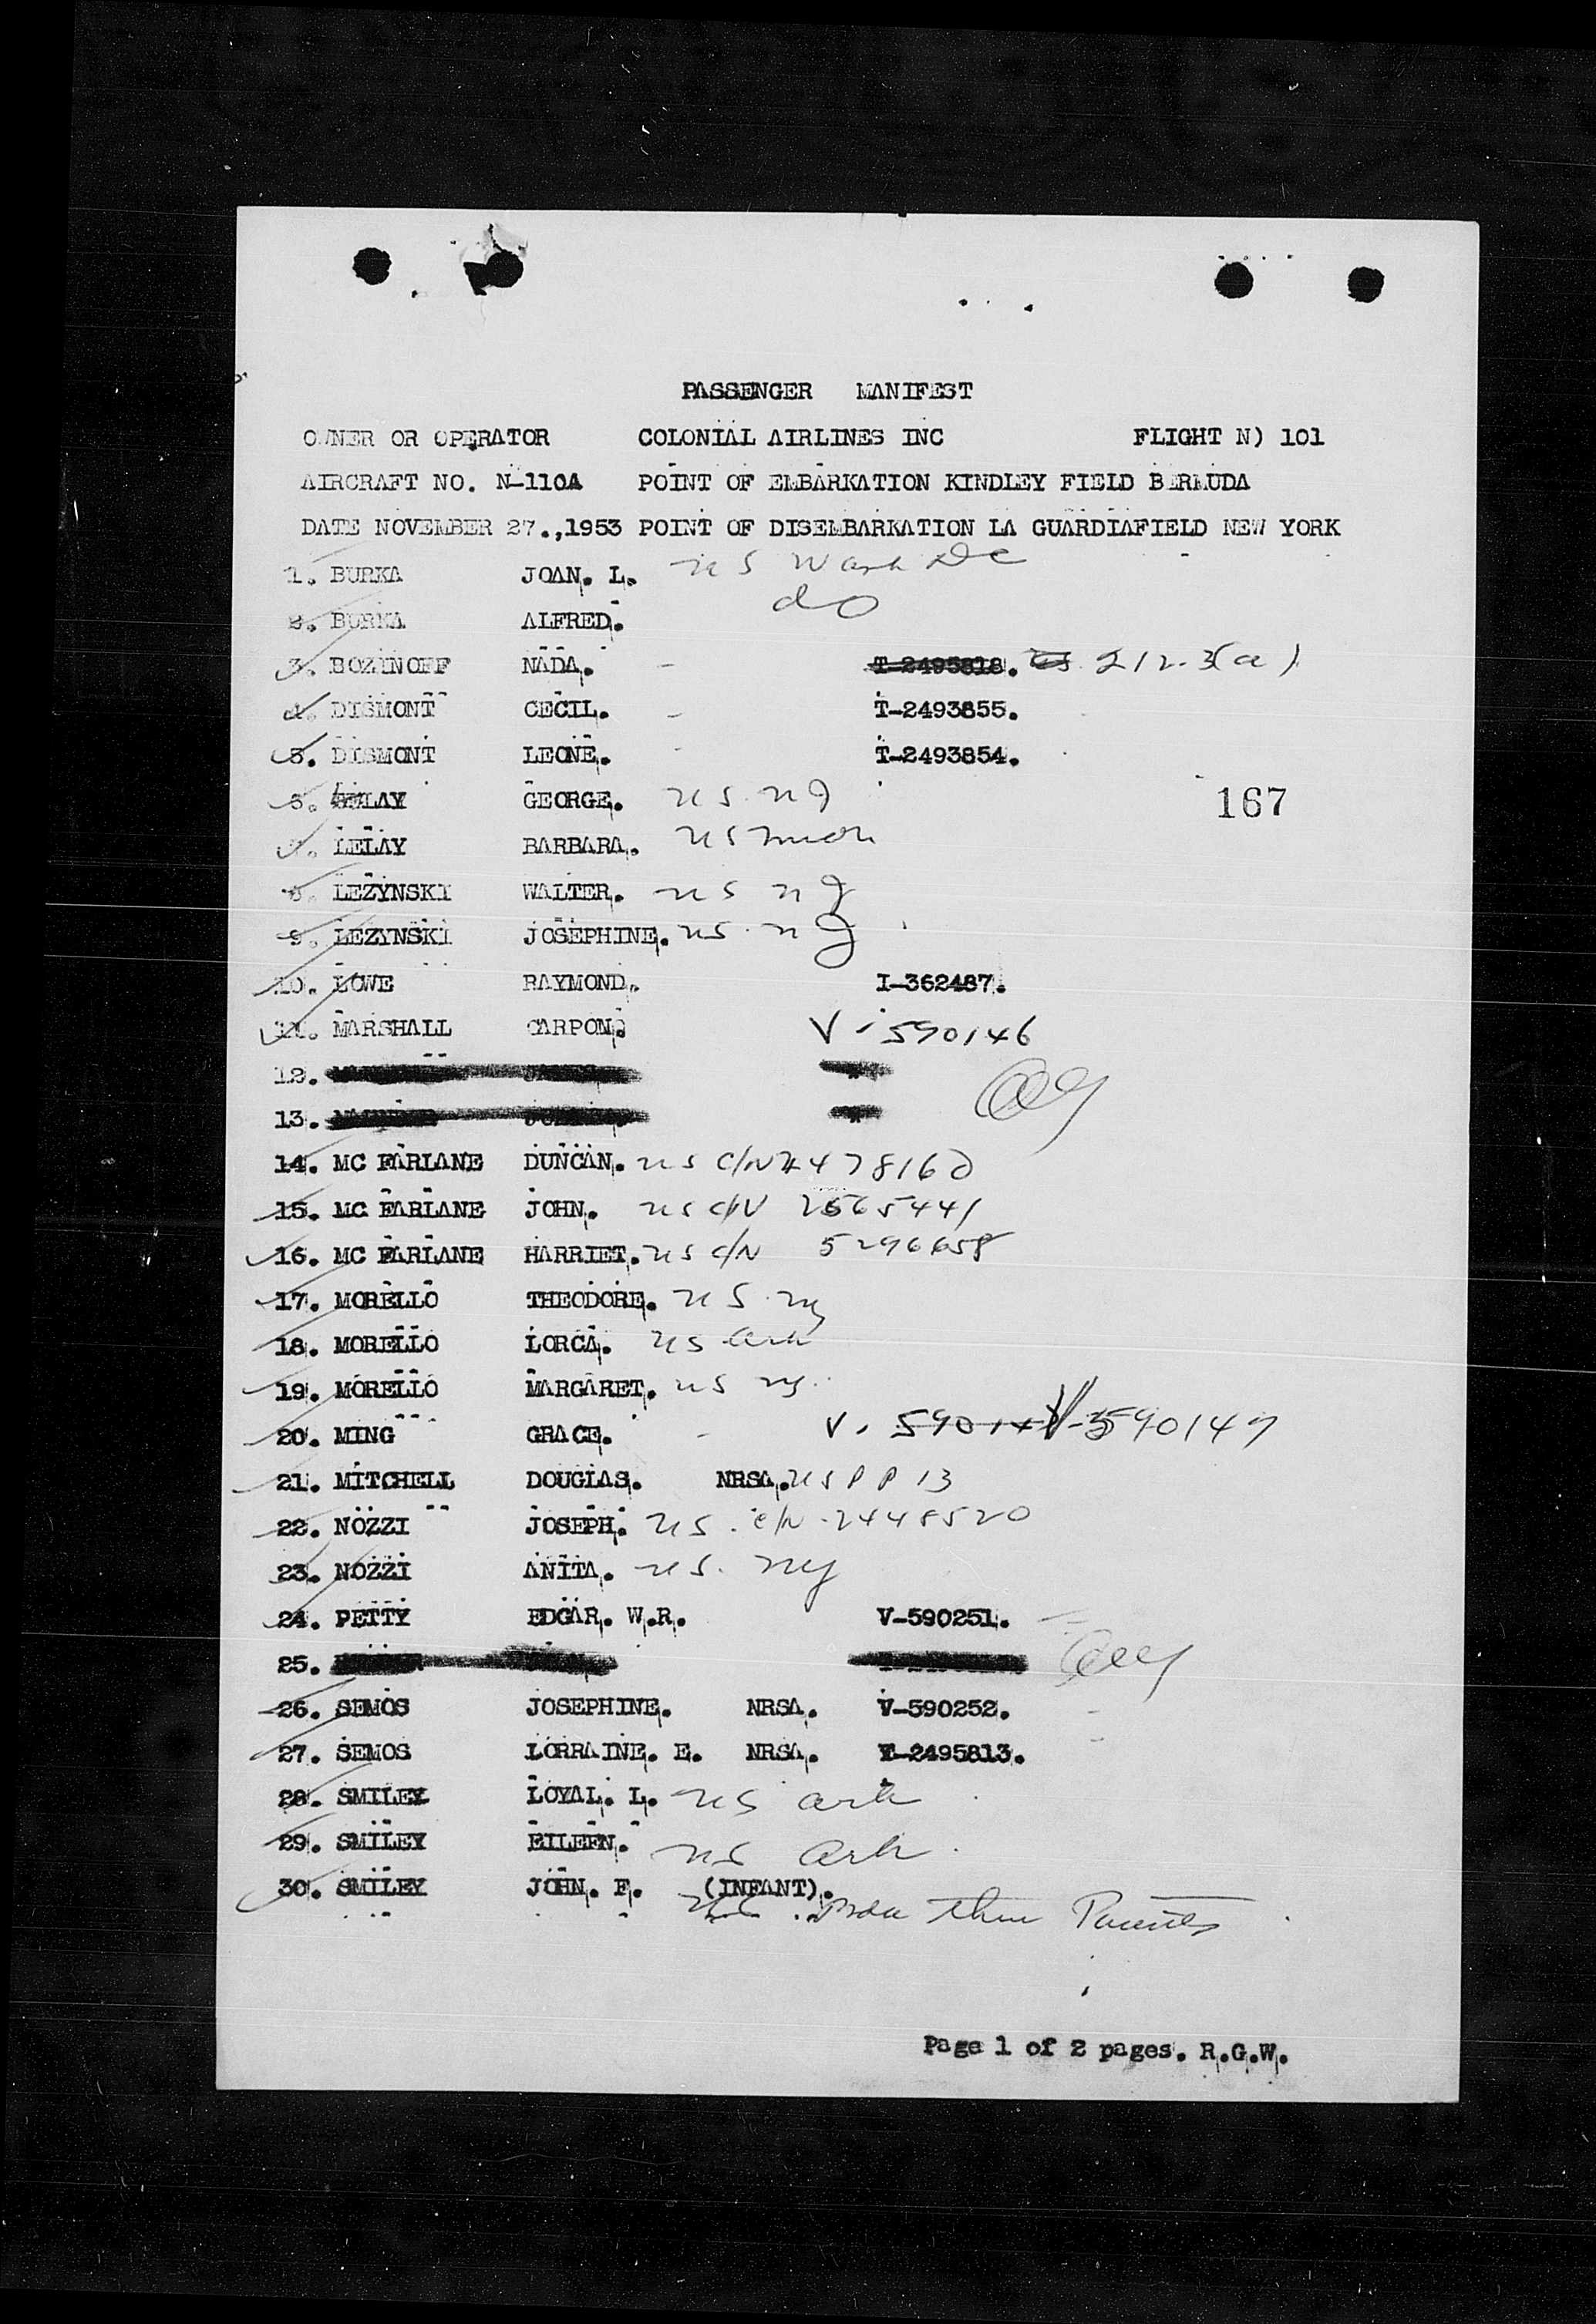 PASSENGER MANIFEST
OWNER OR OPERATOR COLONIAL AIRLINES INC FLIGHT N) 101
AIRCRAFT NO. N-110A POINT OF EMBARKATION KINDLEY FIELD BERMUDA
DATE NOVEMBER 27.,1953 POINT OF DISEMBARKATION LA GUARDIAFIELD NEW YORK
1. BURKA JOAN. L. US Wash DC
2. BURKA ALFRED. do
3. BOZINOFF NADA. - T-2495818. 212.3(a)
4. DISMONT CECIL. - T-2493855.
5. DISMONT LEONE. - T-2493854.
6. LELAY GEORGE. US NJ
167
7. LELAY BARBARA. US
8. LEZYNSKI WALTER. US NJ
9. LEZYNSKI JOSEPHINE. US. NJ
10. LOWE RAYMOND. I-362487.
11. MARSHALL CARPON. V-590146
12.
13.
14. MC FARLANE DUNCAN. US C/N
15. MC FARLANE JOHN. US C/N 2565441
16. MC FARLANE HARRIET. US C/N 5296658
17. MORELLO THEODORE. US. NY
18. MORELLO LORCA. US Ark
19. MORELLO MARGARET. US NY.
20. MING GRACE. - V-590147
21. MITCHELL DOUGLAS. NRSA. US P P 13
22. NOZZI JOSEPH. US. C/N-2448520
23. NOZZI ANITA. US. NY
24. PETTY EDGAR. W.R. V-590251.
25.
26. SEMOS JOSEPHINE. NRSA. V-590252. -
27. SEMOS LORRAINE. E. NRSA. T-2495813. -
28. SMILEY LOYAL. L. US Ark
29. SMILEY EILEEN. US Ark.
30. SMILEY JOHN. F. (INFANT).
US Bda thru Parents
Page 1 of 2 pages. R.G.W.